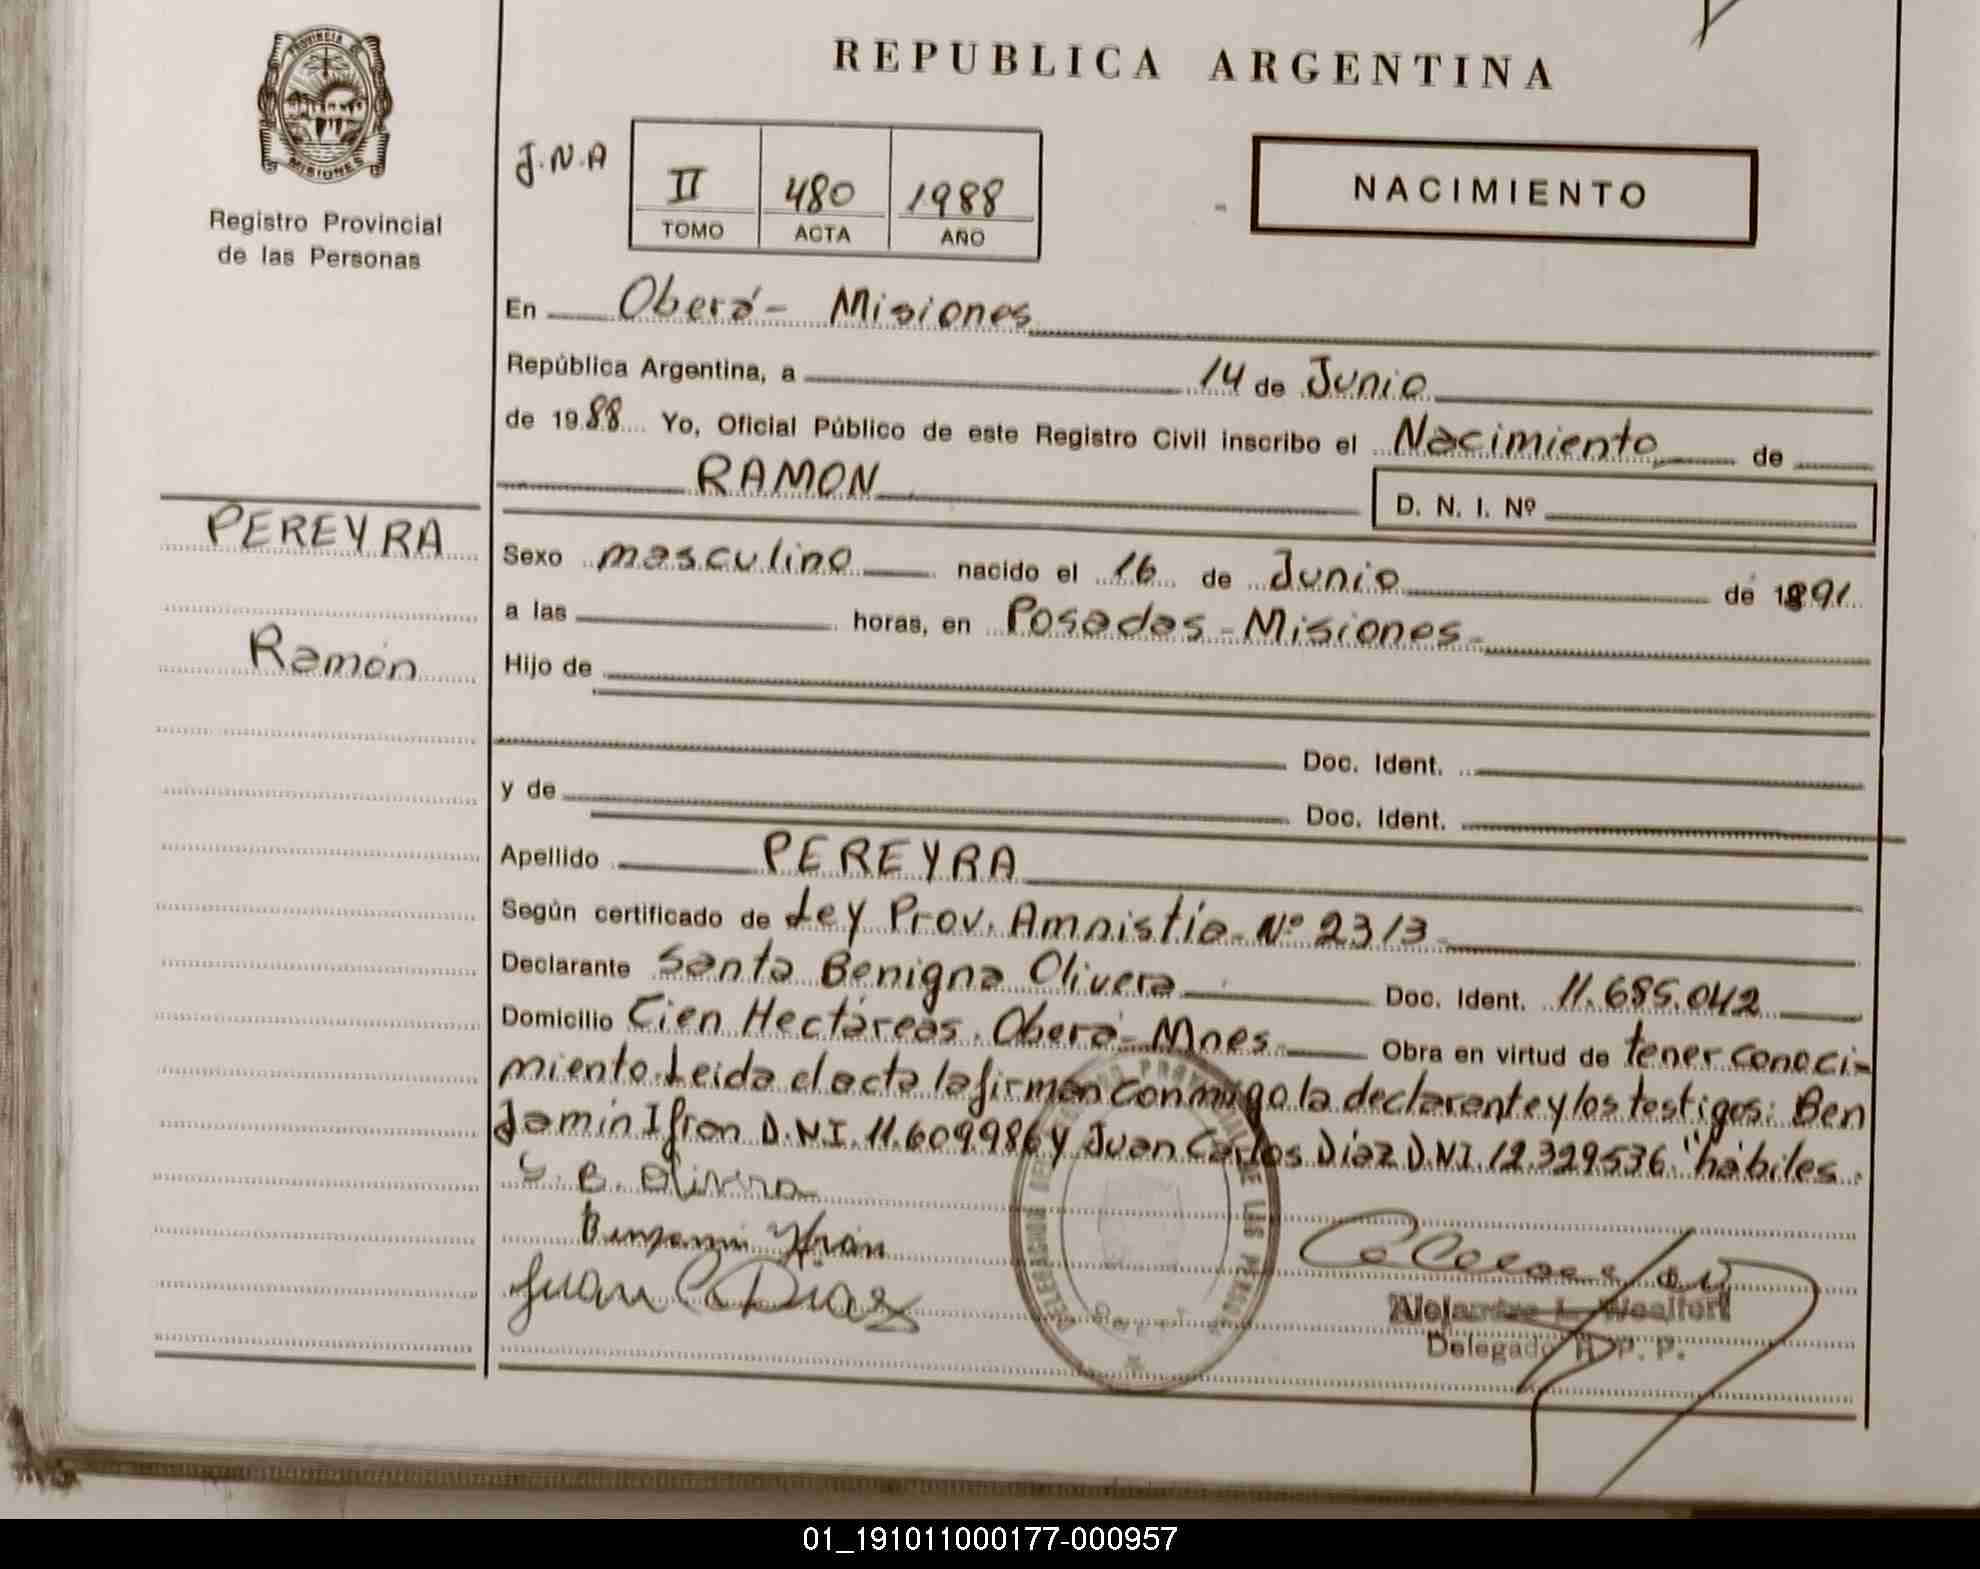 REPUBLICA ARGENTINA
PROVINCIA DE
MISIONES
Registro Provincial
de las Personas
J.N.A
II 480 1988
TOMO ACTA AÑO
NACIMIENTO
En Oberá - Misiones
República Argentina, a 14 de Junio
de 1988 Yo, Oficial Público de este Registro Civil inscribo el Nacimiento de
RAMON
D. N. I. Nº
PEREYRA
Ramón
Sexo masculino nacido el 16 de Junio de 1891
a las horas, en Posadas - Misiones -
Hijo de
Doc. Ident.
y de
Doc. Ident.
Apellido PEREYRA
Según certificado de Ley Prov. Amnistía Nº 2313
Declarante Santa Benigna Olivera Doc. Ident. 11.685.042
Domicilio Cien Hectáreas. Oberá - Mnes - Obra en virtud de tener conoci-
miento. Leida el acta la firman conmigo la declarante y los testigos: Ben
jamín Ifran D.N.I. 11.609.986 y Juan Carlos Díaz D.N.I. 12.329536. "hábiles.
S. B. Olivera
Benjamin Ifran
Juan C Diaz
DE LAS
Delegado R. P. P.
01_191011000177-000957